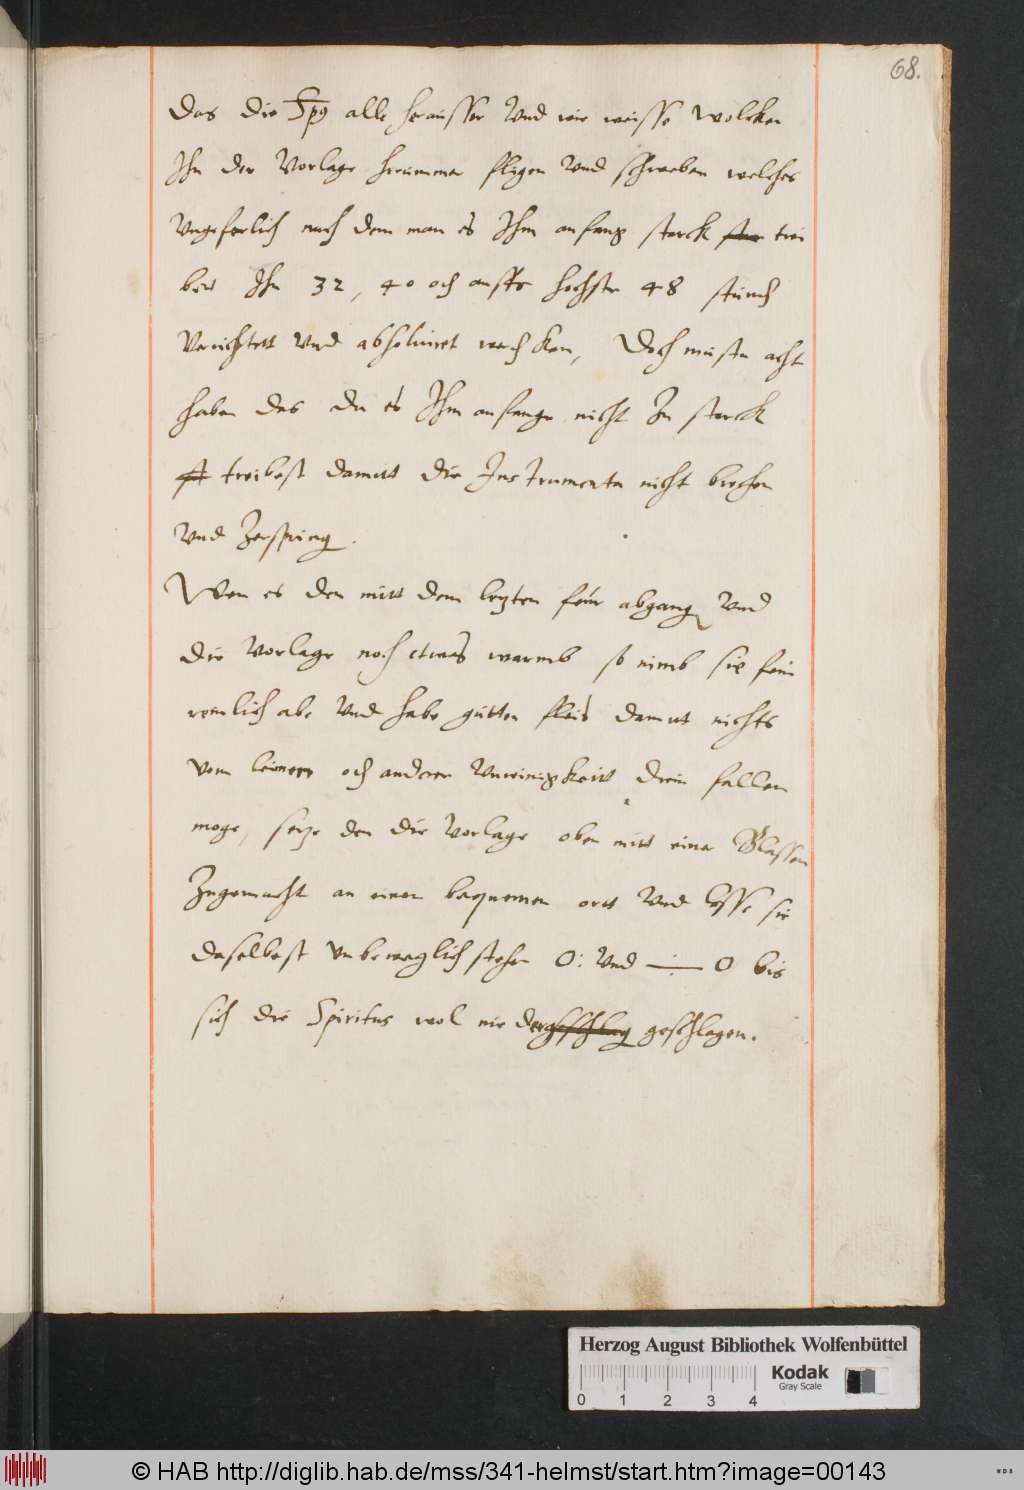 68.
das die Spũ alle herausser Vnd wie weisse Wolcken
Ihn der Vorlage hreummer fligen Vnd schweben welches
Vngeferlich nach dem man es Ihm anfang starck star trei
bet Ihn 32, 40 och auffs hochste 48 stund
Verrichtett Vnd absoluiret werden kan, Doch mustu acht
haben das du es Ihm anfange nicht Zu starck
st treibest damitt die Instrumenta nicht brechen
Vnd Zerspring.
Wen es den mitt dem letzten feur abgang Vnd
die Vorlage noch etwas warmb so nimb sie fein
reinlich abe Vnd habe gutten fleis damitt nichts
vom leimen och ander Vnreinigkeitt drein fallen
moge, setze den die Vorlage oben mitt eine Glassen
Zugemacht an einen bequemen ortt Vnd lasse sie
daselbest Vnbeweglich stehen O: Vnd O bis
sich die Spiritus wol nieder geschlag geschlagen.
Herzog August Bibliothek Wolfenbüttel
Kodak
Gray Scale
0 1 2 3 4
© HAB http://diglib.hab.de/mss/341-helmst/start.htm?image=00143